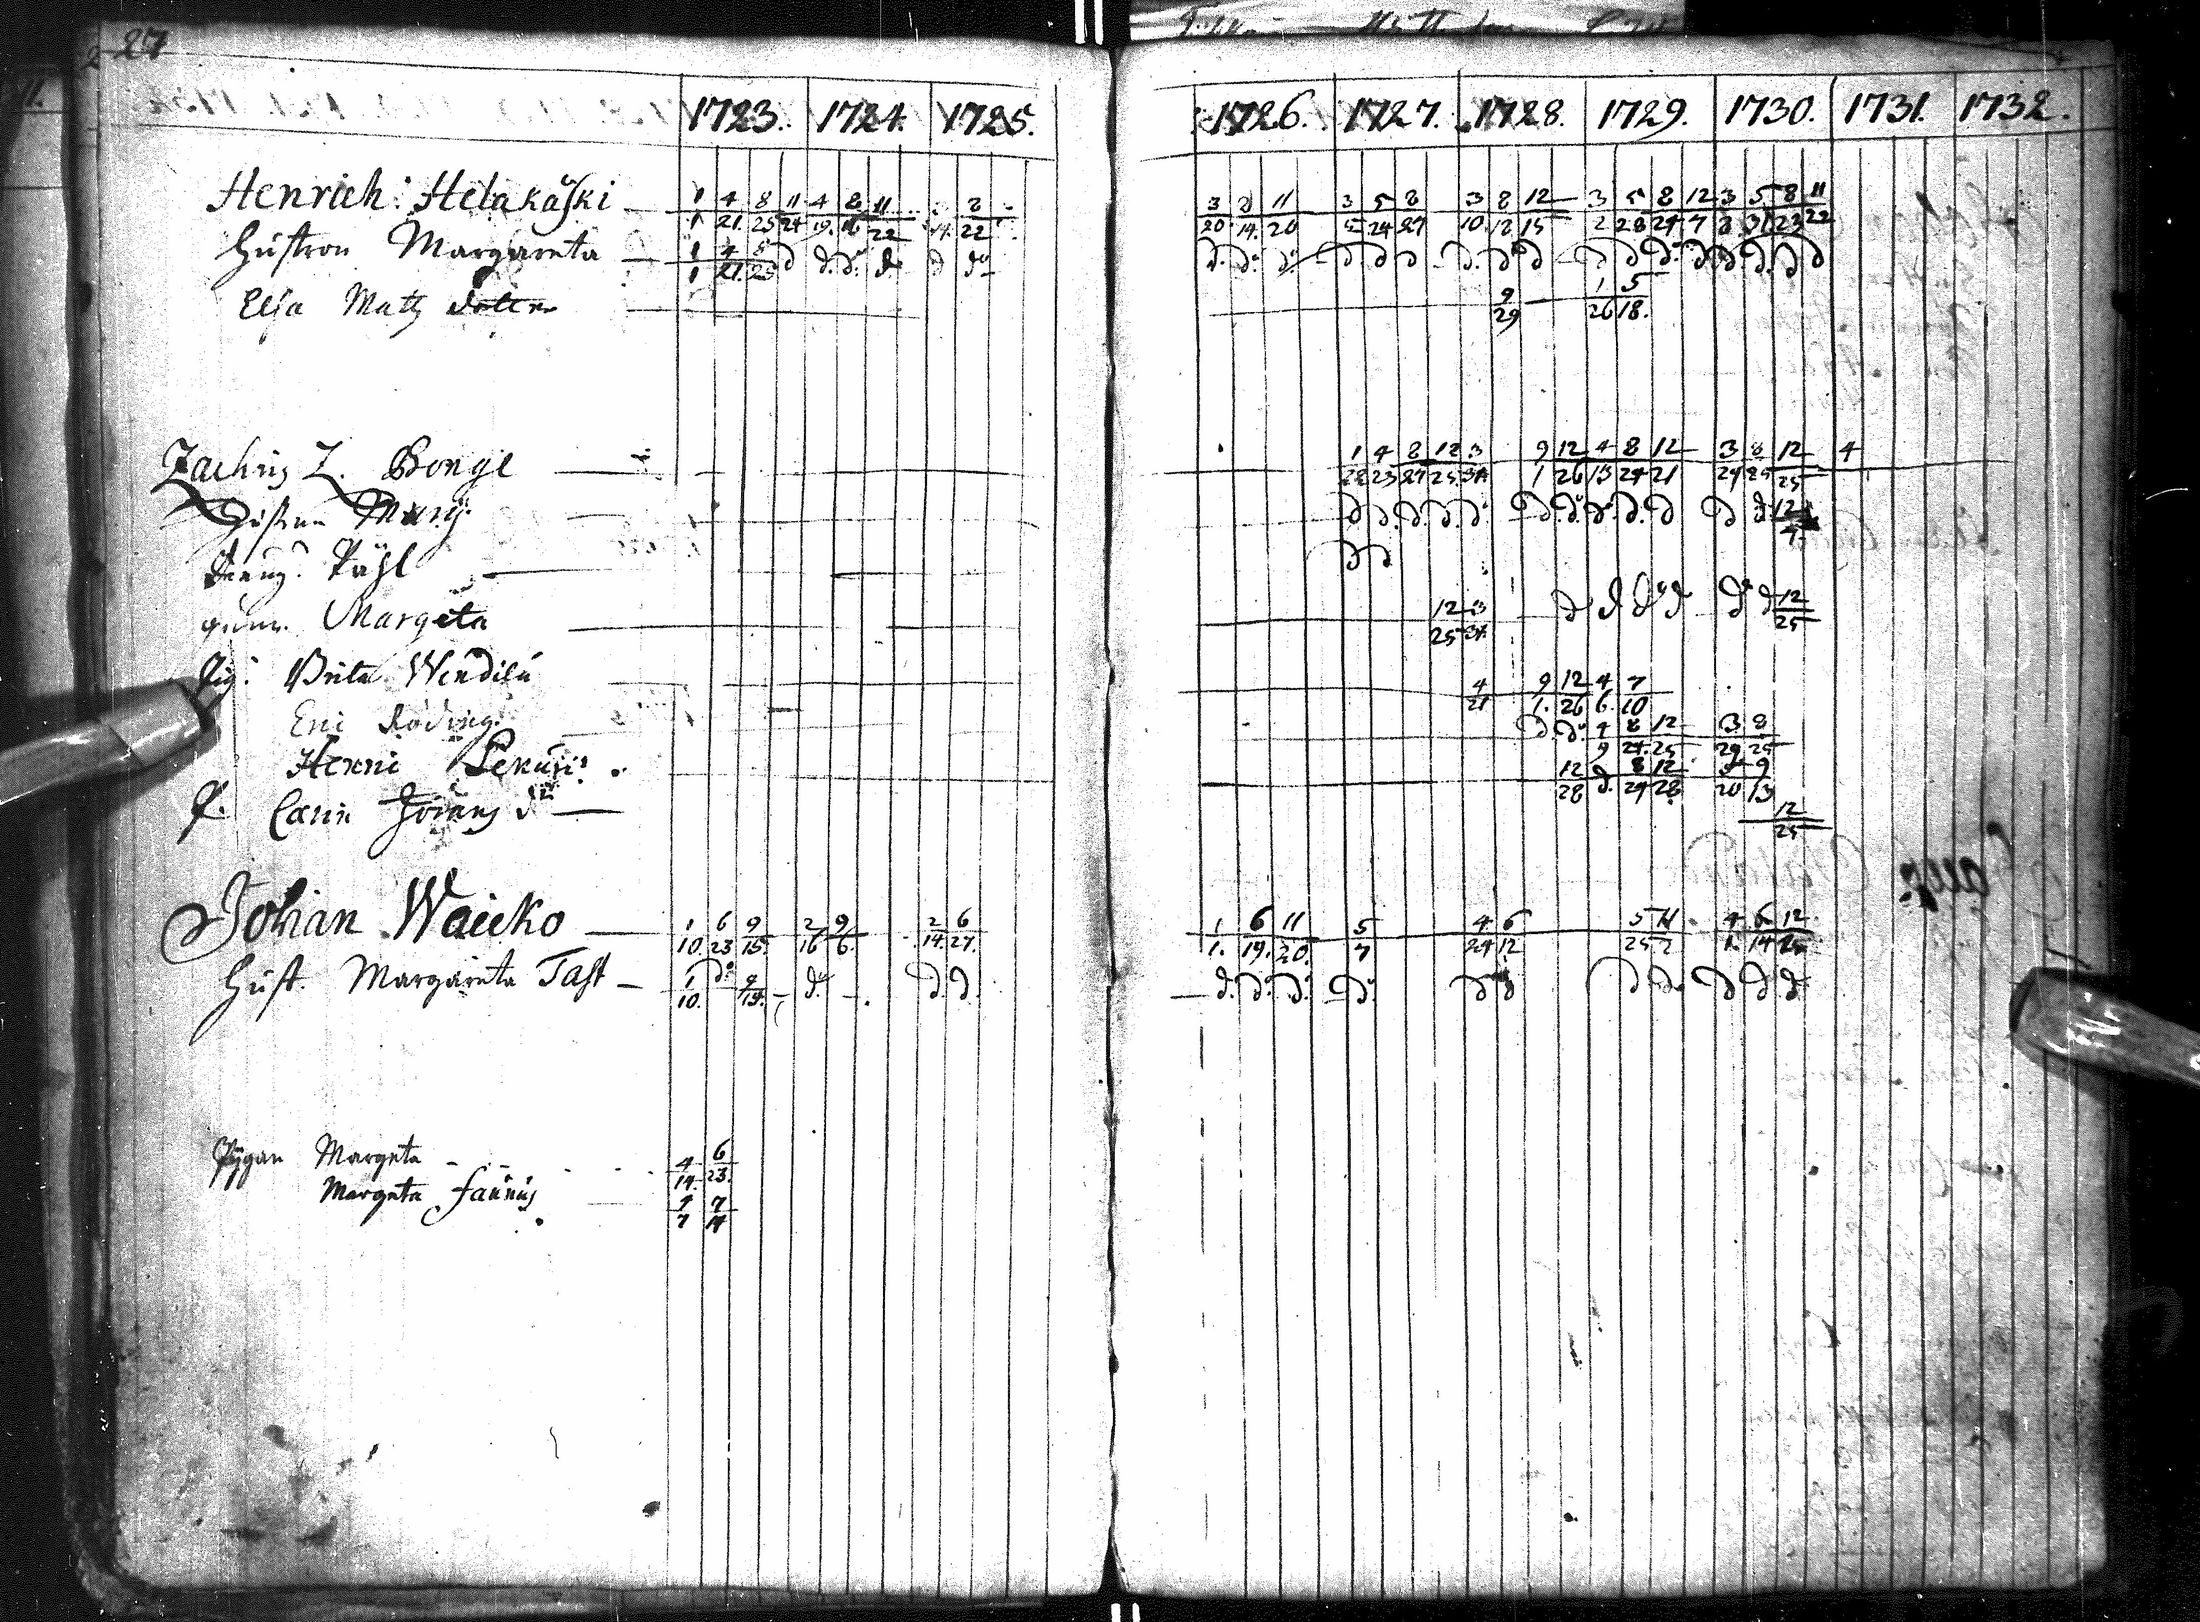 27
1723. 1724. 1725. 1726. 1727. 1728. 1729. 1730. 1731. 1732.
Henrich: Helakaski
1 4 8 11 4 8 11 2 3 8 11 3 5 8 3 8 12 3 5 8 12 3 5 8 11
1 21. 25 24 19. 16 22 14. 22 20 14. 20 5 24 27 10. 12 15 2 28 24 7 2. 31 23 22
Hustron Margareta
1 4 8 d d. d. d d d.
1 21. 25
Elsa Matz
9 1 5
29 26 18.
Zachris Z. Bonge
1 4 8 12 3 9 12 4 8 12 3 8 12 4
22 23 27 25 31 1 26 13 24 21 29 25 25
Hustrun Mary
12
Dreng. Påhl
Margeta
12 3 12
25 31. 25
Pig: Brita Wendilu
4 9 12 4 7
21 1. 26 6. 10
Eric Röding
4 8 12 3 8
9 24. 25 29 25
Henric
12 d. 8 12 9
28 24 28 20 13
P. Carin Jörans dr
12
25
Johan Waicko
1 6 9 2 9 2 6 1 6 11 5 4 6 5 11 4 6 12
10. 23 15. 16 6 14. 27. 1. 19. 20. 7 24 12 25 2 1. 14 25
Hust. Margareta Tast
1 d: 9 d. d. d.
10. 15.
Pygan Margeta
4 6
14. 23.
Margeta Fannus
4 7
7 14